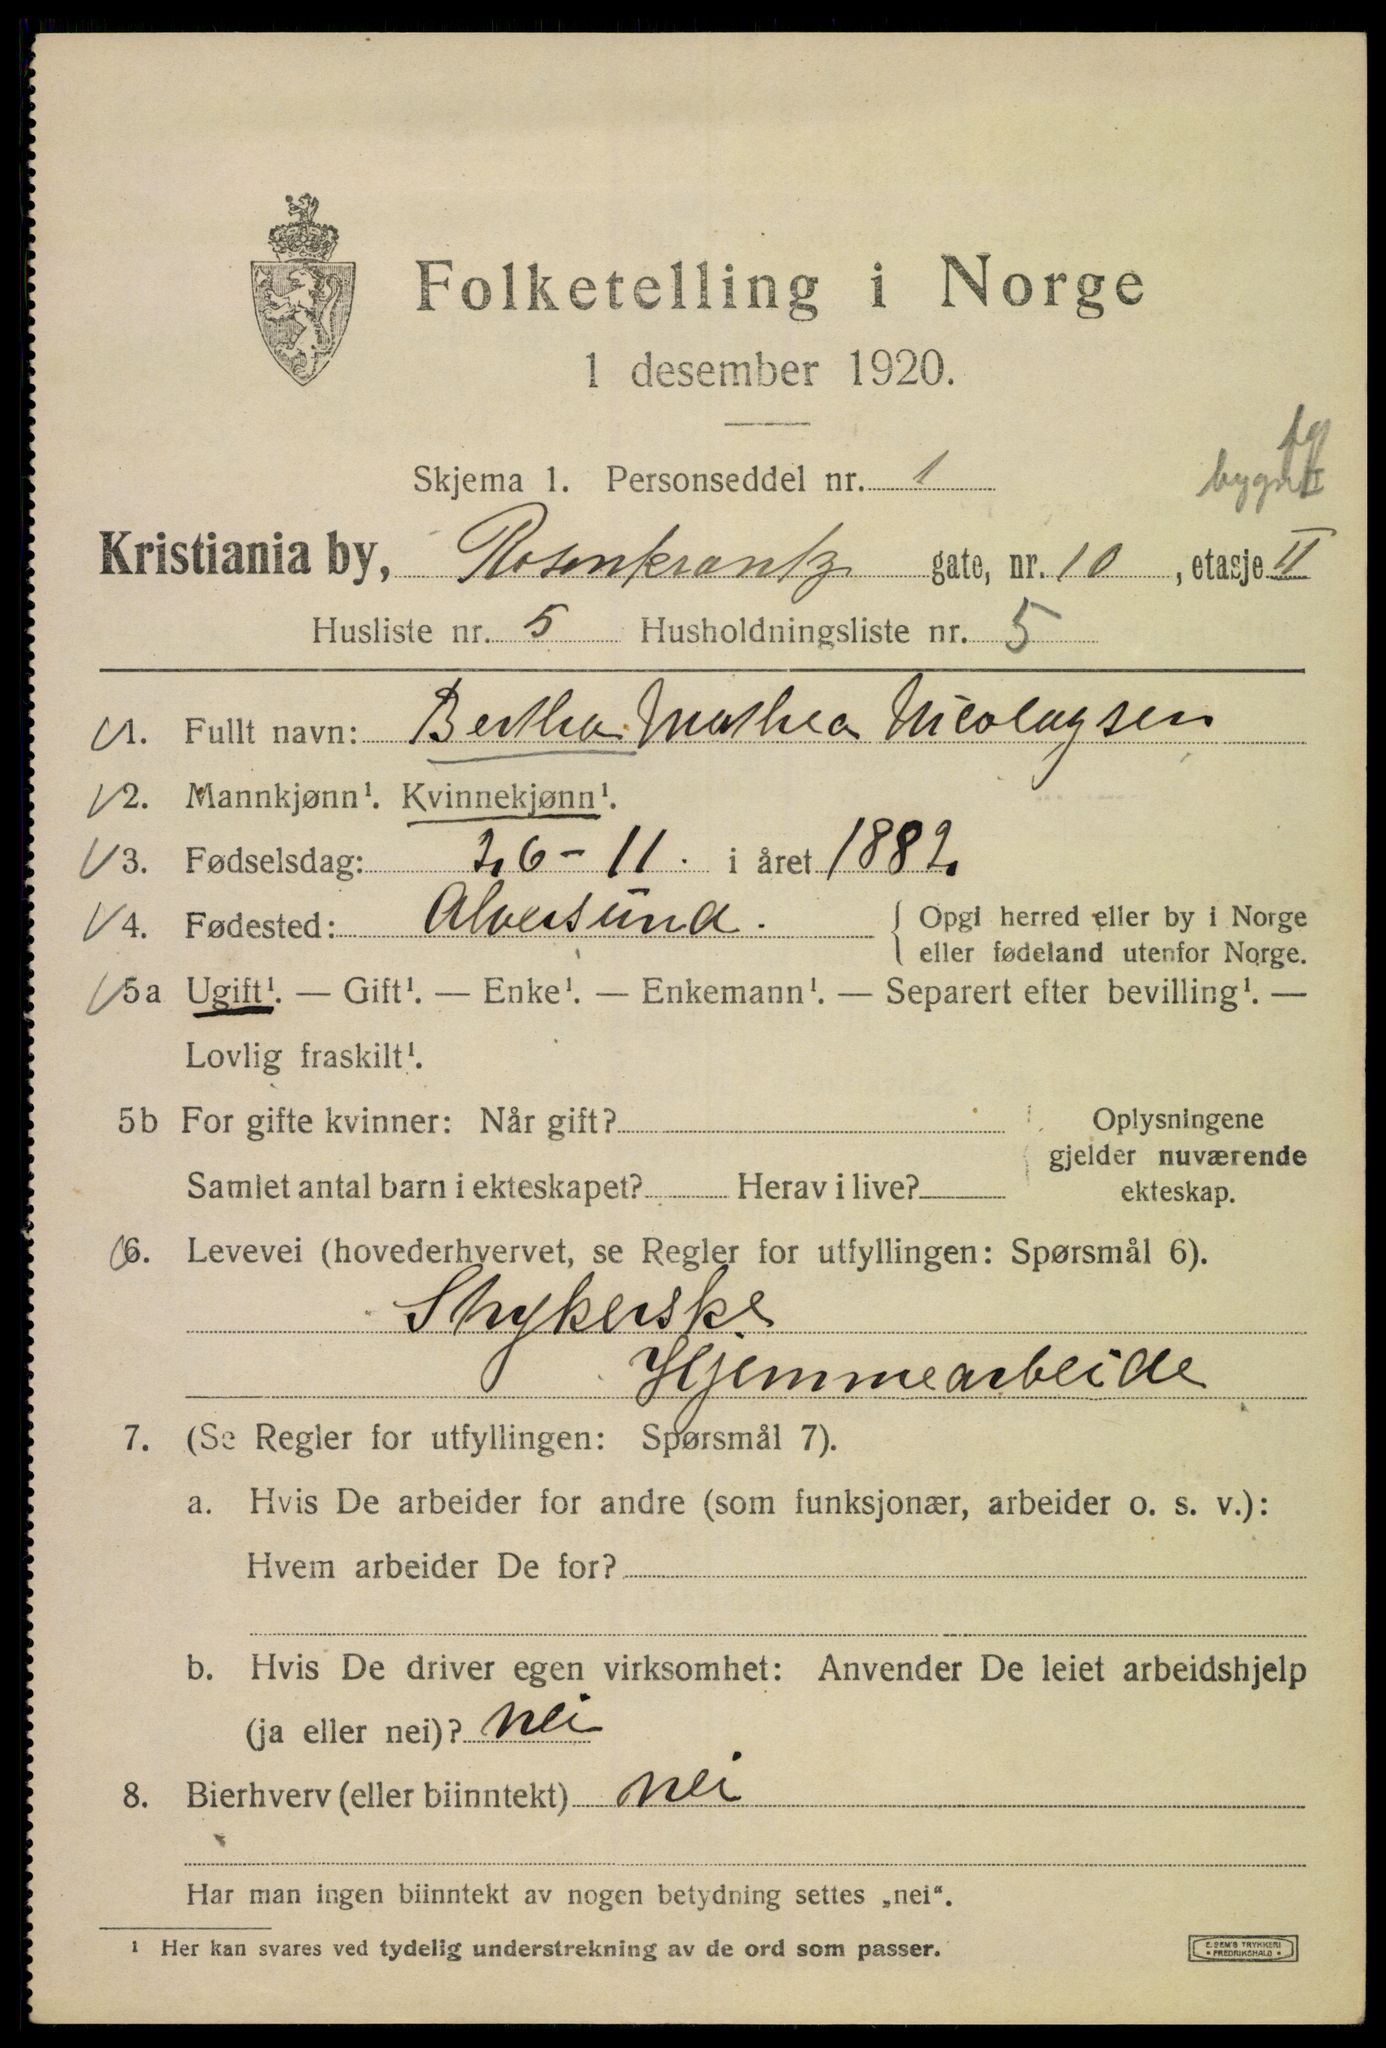 Folketelling i Norge
1 desember 1920.
Skjema 1. Personseddel nr. 1
bygn. II
Kristiania by, Rosenkrantz gate, nr. 10, etasje II
Husliste nr. 5 Husholdningsliste nr. 5
1. Fullt navn: Bertha Mathea Nicolaysen
2. Mannkjønn¹. Kvinnekjønn¹.
3. Fødselsdag: 26-11. i året 1882.
4. Fødested: Alversund. { Opgi herred eller by i Norge
eller fødeland utenfor Norge.
5a Ugift¹. — Gift¹. — Enke¹. — Enkemann¹. — Separert efter bevilling¹. —
Lovlig fraskilt¹.
5b For gifte kvinner: Når gift? Oplysningene
gjelder nuværende
Samlet antal barn i ekteskapet? Herav i live? ekteskap.
6. Levevei (hovederhvervet, se Regler for utfyllingen: Spørsmål 6).
Strykerske
Hjemmearbeide
7. (Se Regler for utfyllingen: Spørsmål 7).
a. Hvis De arbeider for andre (som funksjonær, arbeider o. s. v.):
Hvem arbeider De for?
b. Hvis De driver egen virksomhet: Anvender De leiet arbeidshjelp
(ja eller nei)? nei
8. Bierhverv (eller biinntekt) nei
Har man ingen biinntekt av nogen betydning settes „nei“.
¹ Her kan svares ved tydelig understrekning av de ord som passer.
E. SEM'S TRYKKERI
• FREDRIKSHALD •